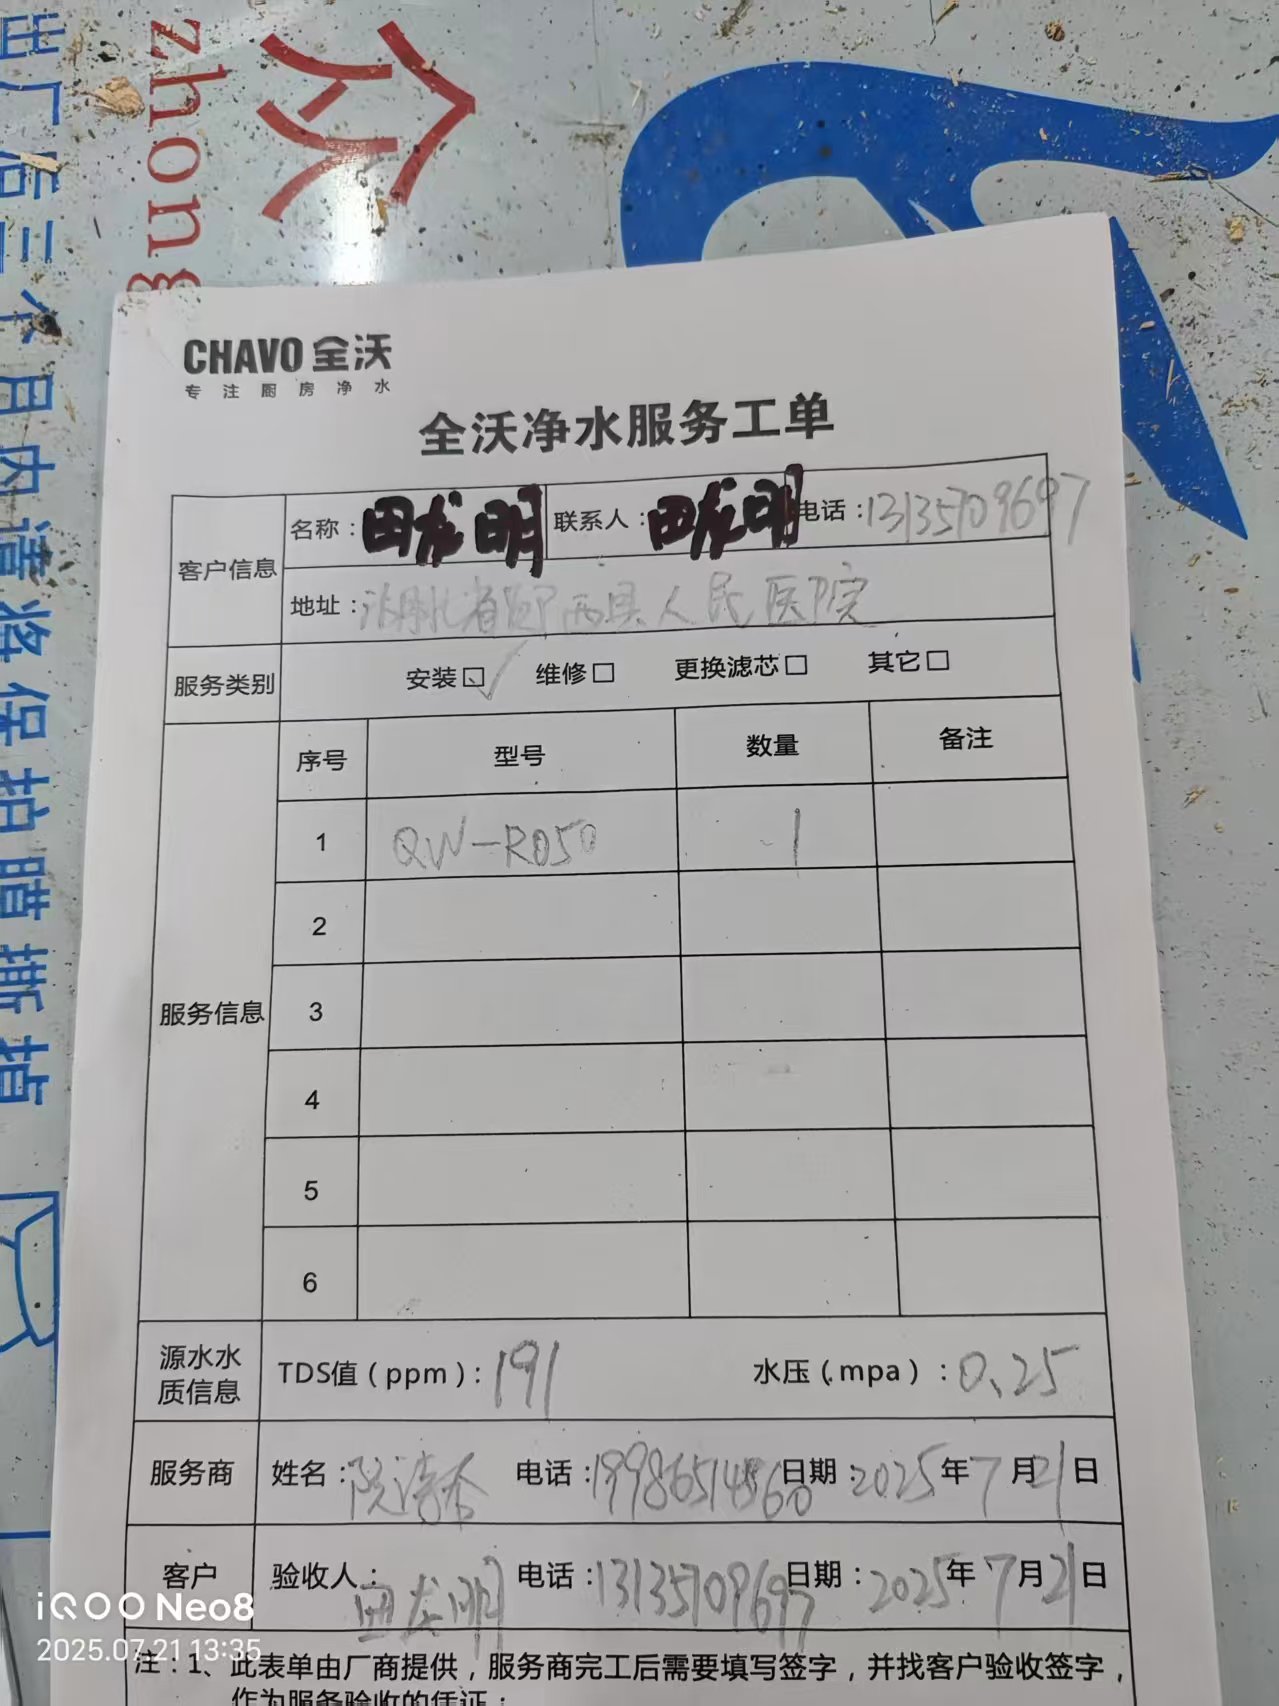 众
zhong
出厂后三个月内请将保护膜撕掉
CHAVO 全沃
专注厨房净水
全沃净水服务工单
客户信息
名称：田龙明 联系人：田龙明 电话：13135709697
地址：湖北省郧西县人民医院
服务类别 安装□✓ 维修□ 更换滤芯□ 其它□
服务信息
序号 型号 数量 备注
1 QW-RO50 1
2
3
4
5
6
源水水质信息 TDS值（ppm）：191 水压（mpa）：0.25
服务商 姓名： 电话： 日期：2025年7月21日
客户 验收人：田龙明 电话：13135709697 日期：2025年7月21日
注：1、此表单由厂商提供，服务商完工后需要填写签字，并找客户验收签字，
作为服务验收的凭证；
iQOO Neo8
2025.07.21 13:35